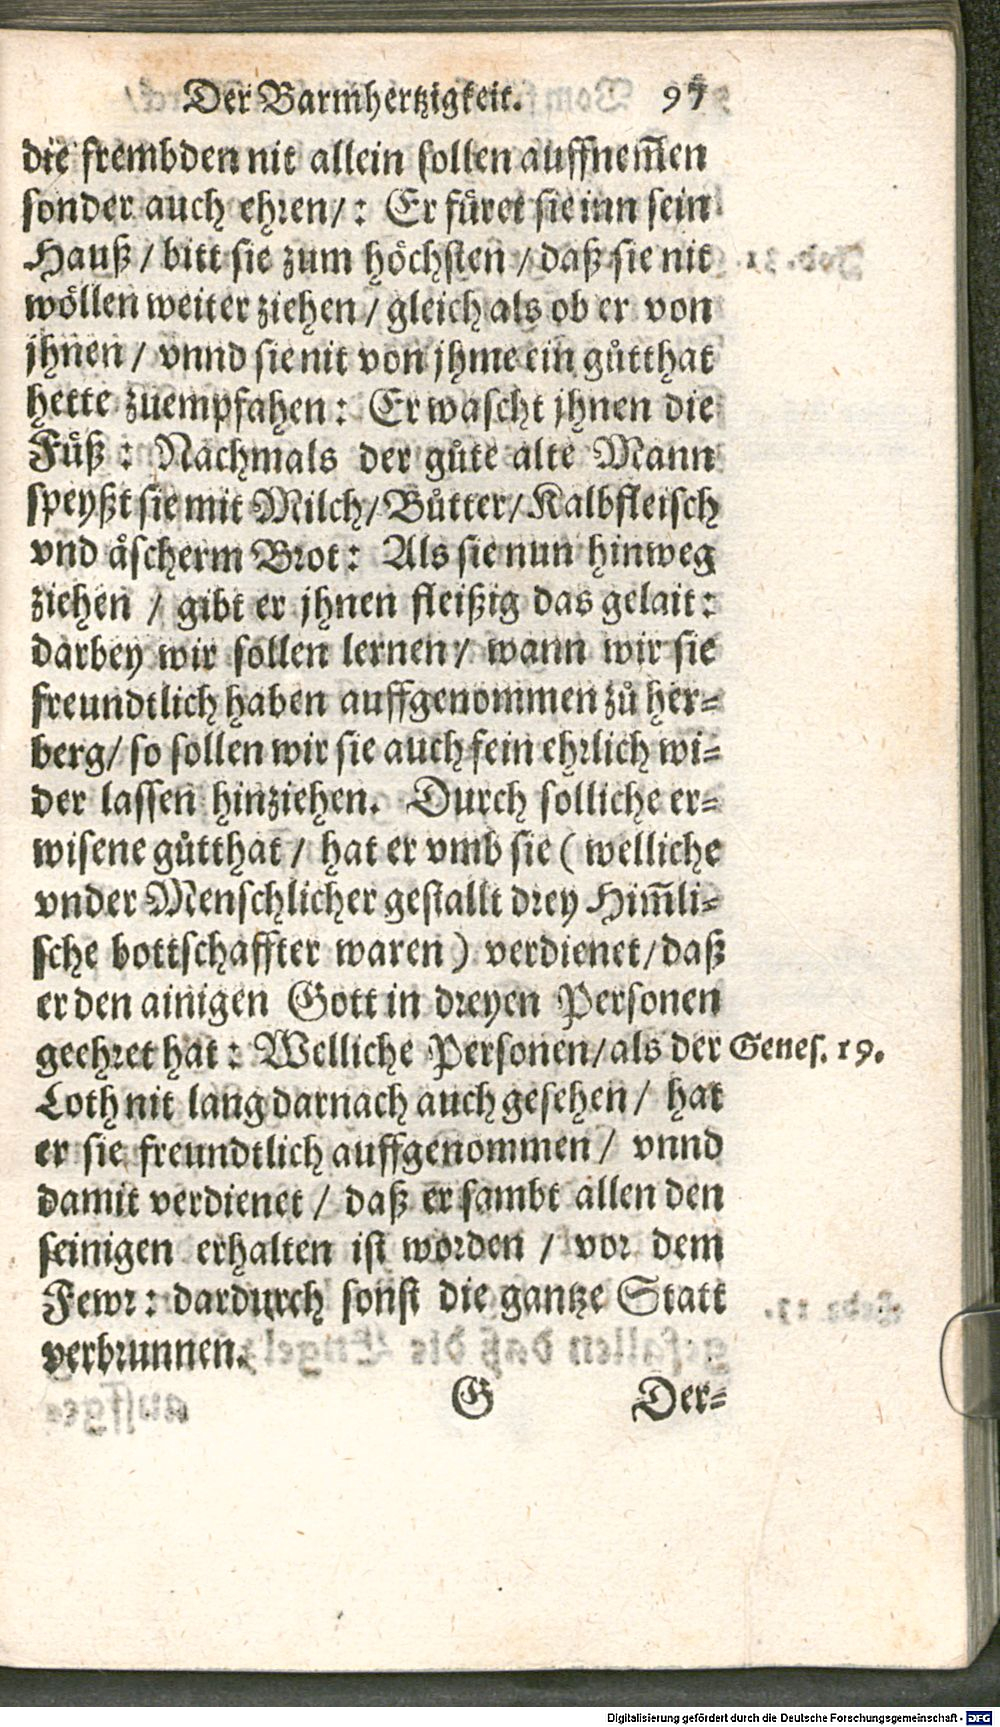 Der Barmhertzigkeit. 97
die frembden nit allein sollen auffnem̃en
sonder auch ehren/: Er füret sie inn sein
Hauß / bitt sie zum höchsten / daß sie nit
wöllen weiter ziehen / gleich als ob er von
jhnen / vnnd sie nit von jhme ein gůtthat
hette zuempfahen: Er wascht jhnen die
Füß : Nachmals der gůte alte Mann
speyßt sie mit Milch/ Bůtter/ Kalbfleisch
vnd åscherm Brot: Als sie nun hinweg
ziehen / gibt er jhnen fleißig das gelait:
darbey wir sollen lernen / wann wir sie
freundtlich haben auffgenommen zů her=
berg/ so sollen wir sie auch fein ehrlich wi=
der lassen hinziehen. Durch solliche er=
wisene gůtthat / hat er vmb sie ( welliche
vnder Menschlicher gestallt drey Him̃li=
sche bottschaffter waren ) verdienet / daß
er den ainigen Gott in dreyen Personen
geehret hat : Welliche Personen/ als der Genes. 19.
Loth nit lang darnach auch gesehen / hat
er sie freundtlich auffgenommen / vnnd
damit verdienet / daß er sambt allen den
seinigen erhalten ist worden / vor dem
Fewr : dardurch sonst die gantze Statt
verbrunnen.
G Der=
Digitalisierung gefördert durch die Deutsche Forschungsgemeinschaft - DFG